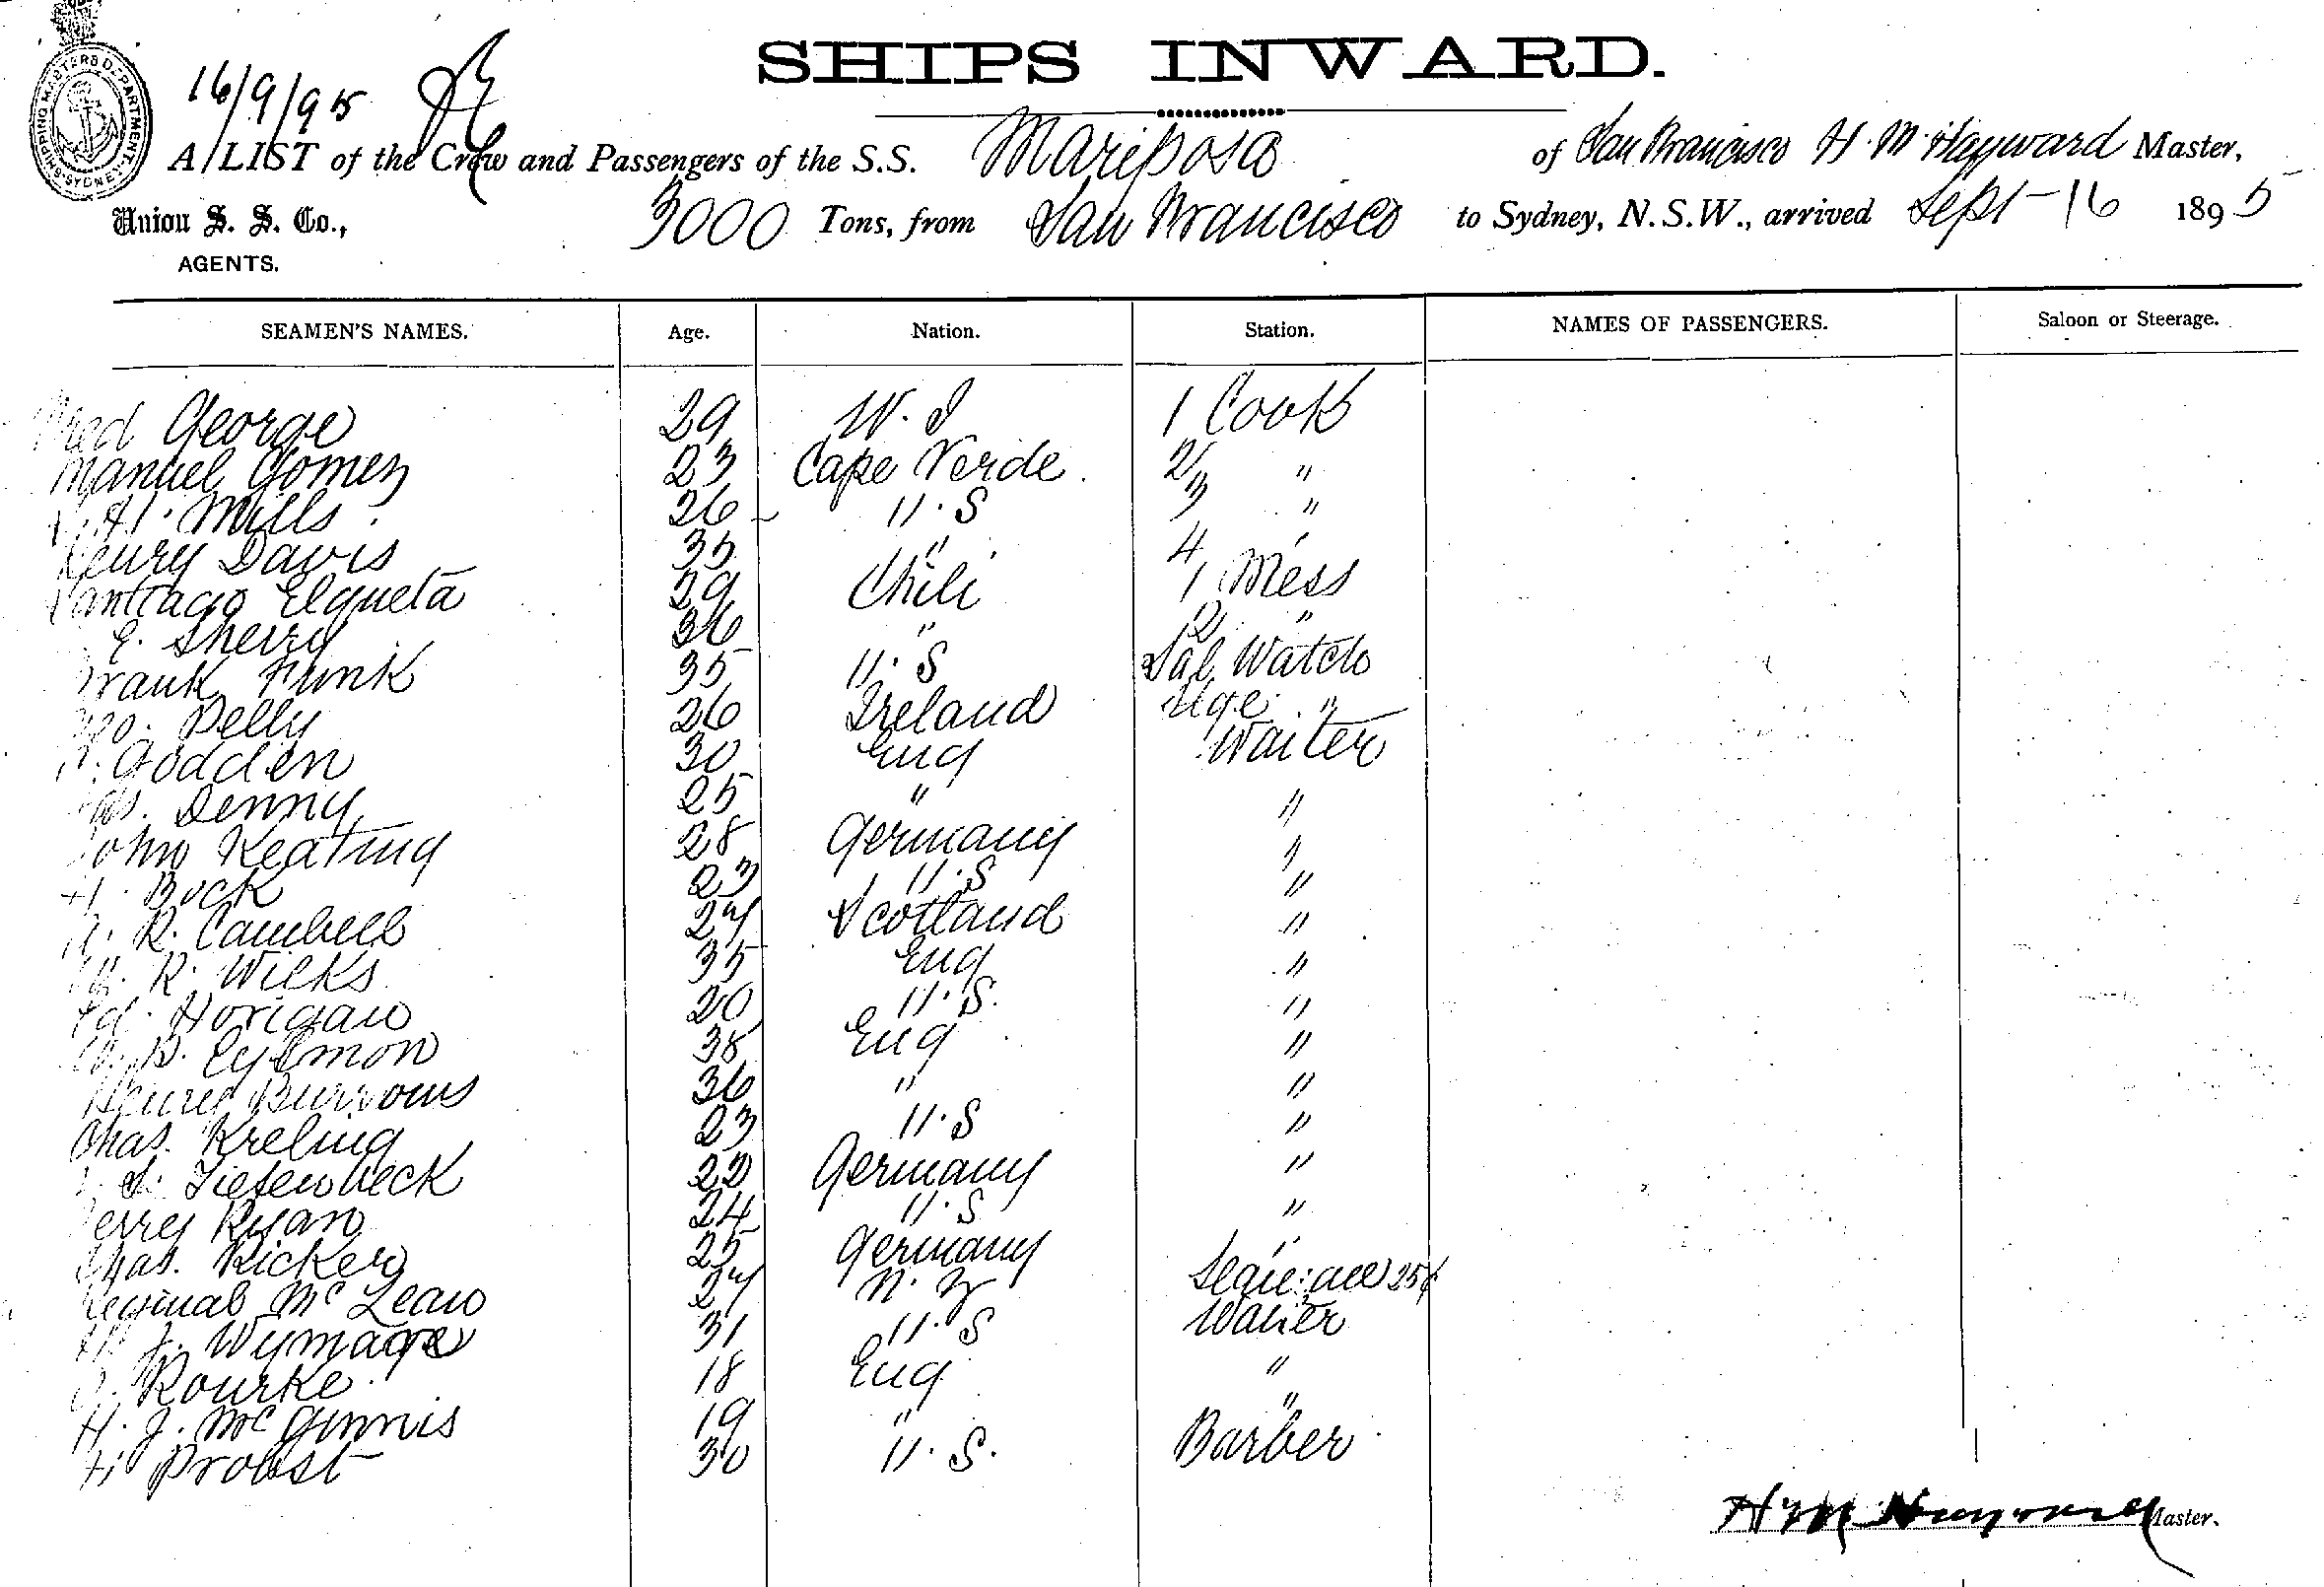 SHIPS INWARD.
SHIPPING MASTERS DEPARTMENT. SYDNEY
16/9/95
A LIST of the Crew and Passengers of the S.S. Mariposa of San Francisco H. M. Hayward Master,
Union S. S. Co., 3000 Tons, from San Francisco to Sydney, N.S.W., arrived Sept 16 1895
AGENTS.
SEAMEN'S NAMES. Age. Nation. Station. NAMES OF PASSENGERS. Saloon or Steerage.
Fred George 29 W. I 1 Cook
Manuel Gomez 23 Cape Verde 2 "
H. Mills 26 U.S 3 "
Henry Davis 35 " 4 "
Santiago Elqueta 29 Chili 1 Mess
E. Sherry 36 " 2 "
Frank Funk 35 U.S Sal Watch
Geo. Pelly 26 Ireland Stge "
Godden 30 Eng Waiter
Jas. Denny 25 " "
John Keating 28 Germany "
H. Bock 23 U.S "
R. Cambell 27 Scotland "
R. Wilks 35 Eng "
Ed. Horigan 20 U.S. "
B. Eylmon 38 Eng "
Henry Burrows 36 " "
Chas. Kreling 23 U.S "
S. Tiefenbeck 22 Germany "
Jerry Ryan 24 U.S "
Chas. Ricker 25 Germany "
Reginal McLean 27 N. Z
J. Wymage 31 U.S Waiter
Rourke 18 Eng "
H. J. McGinnis 19 " "
H. Probst 30 U.S. Barber
H M Hayward Master.